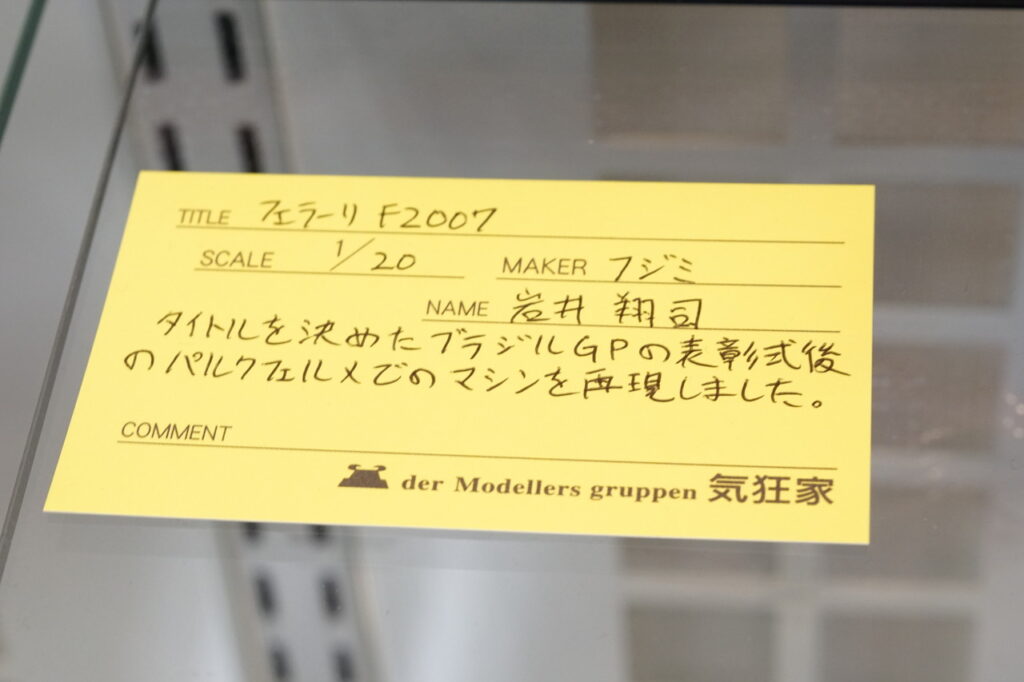 TITLE フェラーリ F2007
SCALE 1/20 MAKER フジミ
NAME 岩井 翔司
タイトルを決めたブラジルGPの表彰式後
のパルクフェルメでのマシンを再現しました。
COMMENT
der Modellers gruppen 気狂家